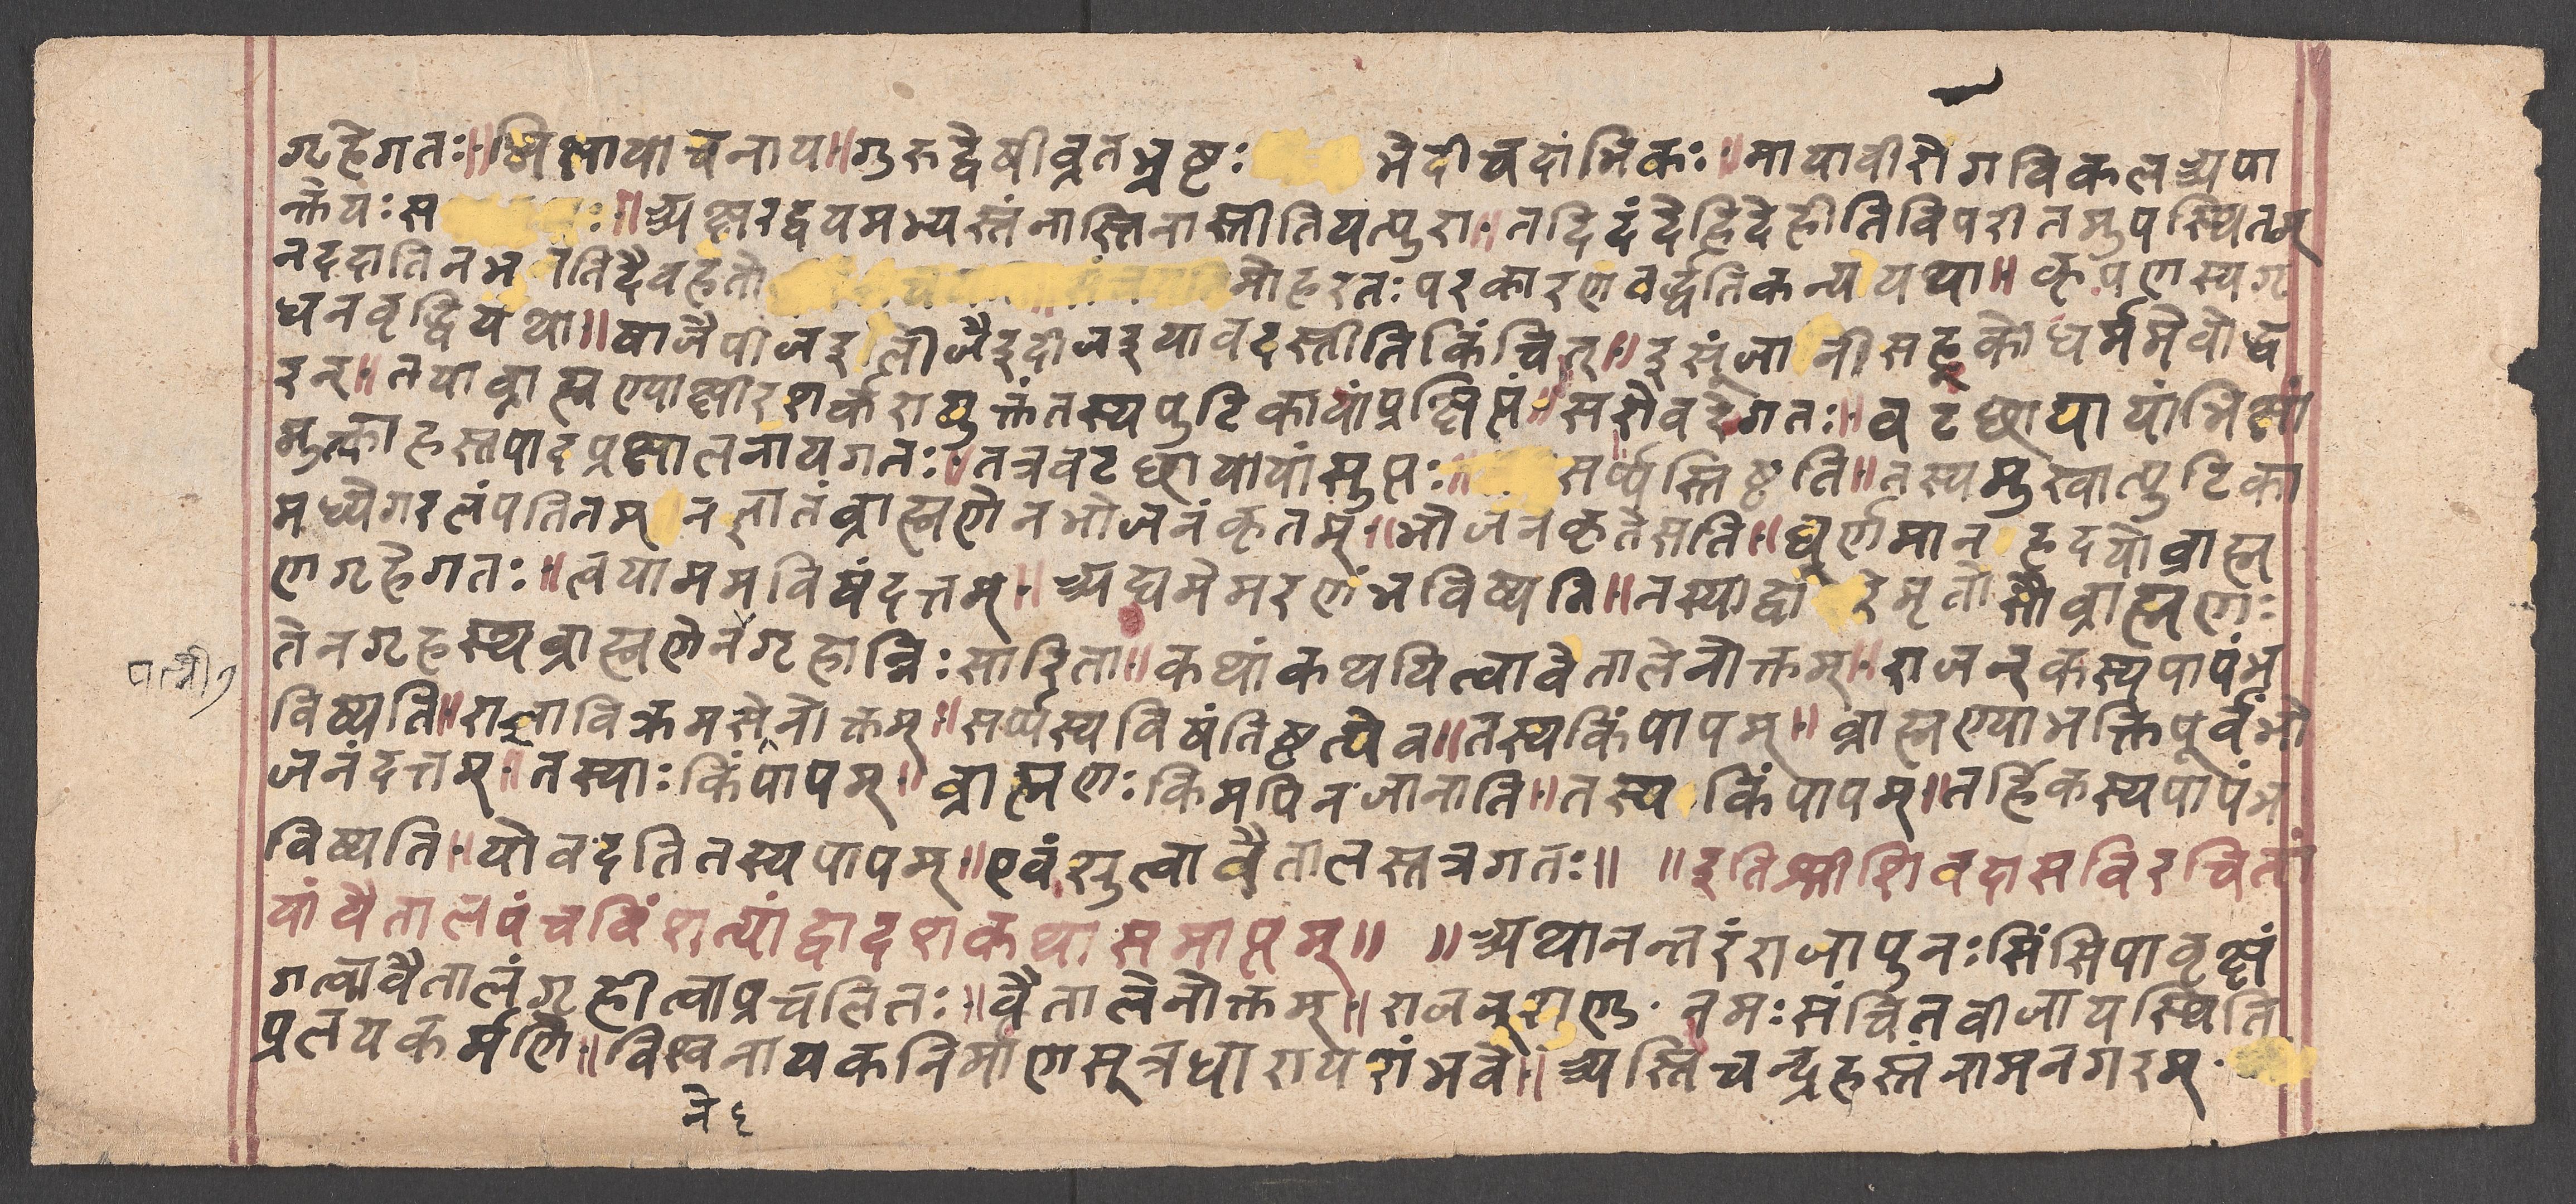 गृहेगतः॥भिक्षायाचनाय॥गुरुद्वेषीव्रतभ्रष्टः भेदीचदांभिकः॥मायावीरोगविकलअपा
क्तेयःस ः॥अक्षरद्वयमभ्यस्तंनास्तिनास्तीतियत्पुरा॥तदिदंदेहिदेहीतिविपरीतमुपस्थितम्
नददातिनभ तिदैवहतो मोहरतःपरकारणेवर्द्धतिकन्य यथा॥कृपणस्यगृ
धनवृद्धिर्यथा॥षाजैपीजइ लीजैइदीजइयावदस्तीतिकिंचित्॥इसूंजा नीसहूकोधर्ममेवोद्ध
रन्॥तयाब्राह्मण्याक्षीरशर्करायुक्तंतस्यपुटिकायांप्रक्षिप्तं॥सरोवरेगतः॥वटछायायांभिक्षां
मुत्काहस्तपादप्रक्षालनायगतः॥तत्रवटछायायांसुप्तः॥ सर्प्पस्तिष्ठति॥तस्यमुखात्पुटिका
मध्येगरलंपतितम् नज्ञातंब्राह्मणेनभोजनंकृतम्॥भोजनकृतेसति॥घूर्णमान हृदयोब्राह्म
णगृहेगतः॥त्वयाममविषंदत्तम्॥अद्यमेमरणंभविष्यति॥तस्याद्वा रेमृतोसौब्राह्मणः
तेनगृहस्थब्राह्मणेनगृहान्निःसारिता॥कथांकथयित्वावेतालेनोक्तम्॥राजन्कस्यपापंभ
पत्नी९
विष्यति॥राज्ञाविक्रमसेनोक्तम्॥सर्प्पस्यविषंतिष्ठत्येव॥तस्यकिंपापम्॥ब्राह्मण्याभक्तिपूर्वंभो
जनंदत्तम्॥तस्याःकिंपापम्॥ब्राह्मणःकिमपिनजानाति॥तस्य किंपापम्॥तर्हिकस्यपापंभ
विष्यति॥योवदतितस्यपापम्॥एवंस्रुत्वावैतालस्तत्रगतः॥ ॥इतिश्रीशिवदासविरचिता
यांवैतालपंचविंशत्यांद्वादशकथासमाप्तम्॥ ॥अथानन्तरंराजापुनःसिंसिपावृक्षं
गत्वावैतालंगृहीत्वाप्रचलितः॥वैतालेनोक्तम्॥राजन्शृणु·नमःसंचितवीजायस्थिति
प्रलयकर्मणे॥विश्वनायकनिर्माणसूत्रधारायशंभवे॥अस्तिचन्द्रहस्तंनामनगरम्·
ने६